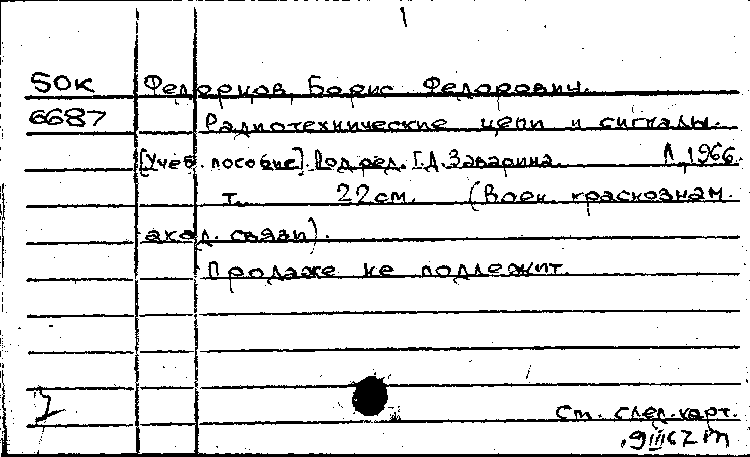 50к Федорцов, Борис Федорович.
6687 Радиотехнические цепи и сигналы.
[Учеб. пособие]. Под ред. Г.Д. Заварина. Л., 1966.
т. 22 см. (Воен. краснознам.
акад. связи).
Продаже не подлежит.
См. след. карт.